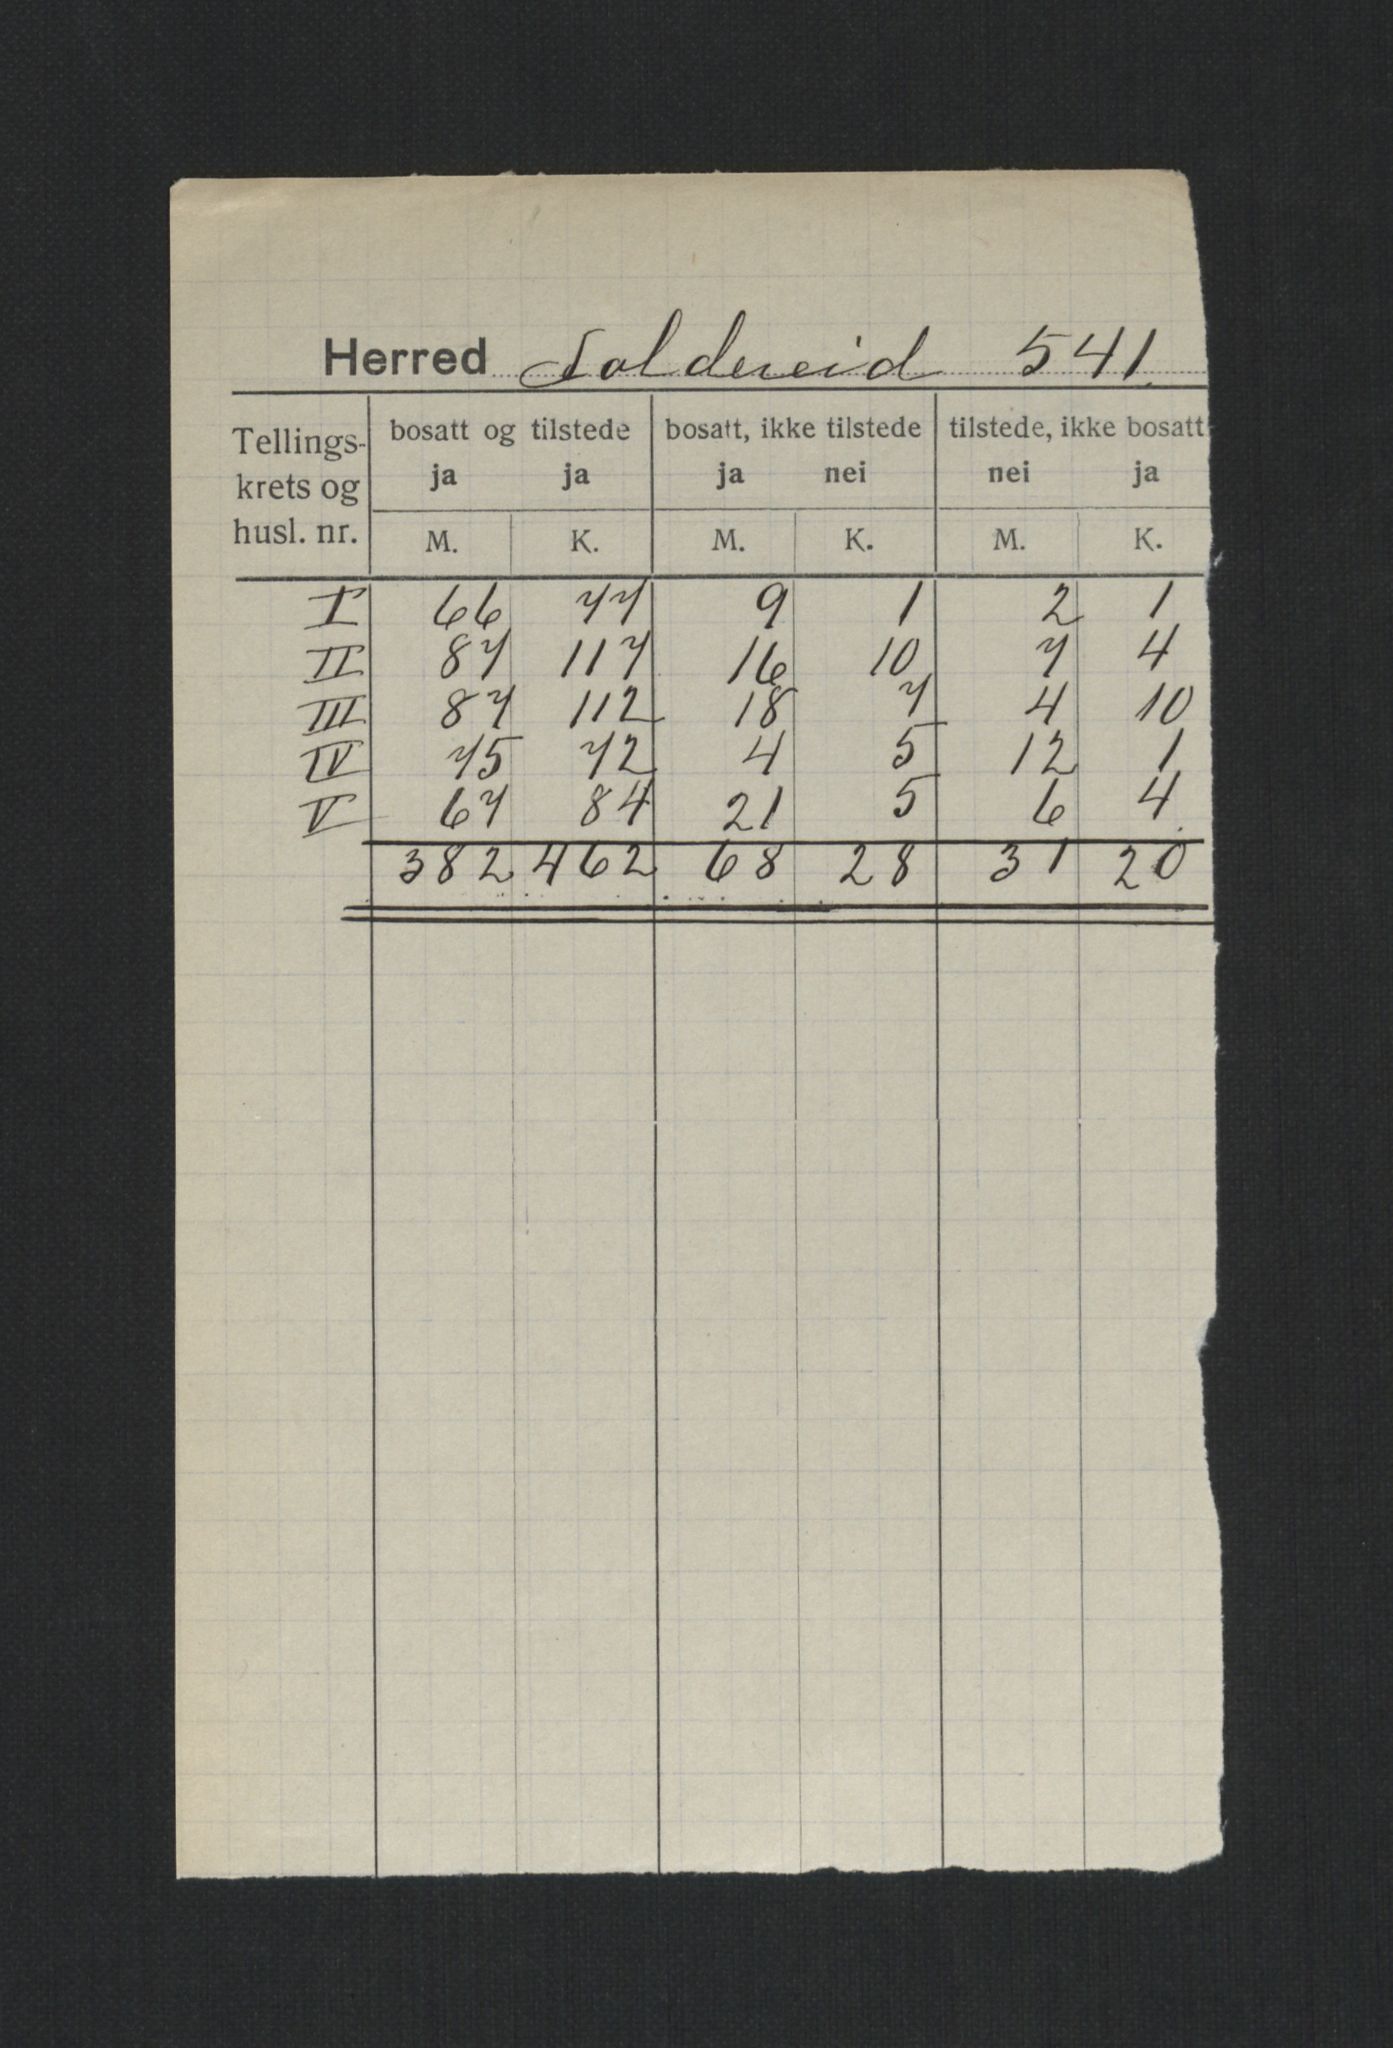 Herred Foldereid 541
Tellings- bosatt og tilstede bosatt, ikke tilstede tilstede, ikke bosatt
krets og ja ja ja nei nei ja
husl. nr. M. K. M. K. M. K.
I 66 77 9 1 2 1
II 87 117 16 10 7 4
III 87 112 18 7 4 10
IV 75 72 4 5 12 1
V 67 84 21 5 6 4
382 462 68 28 31 20